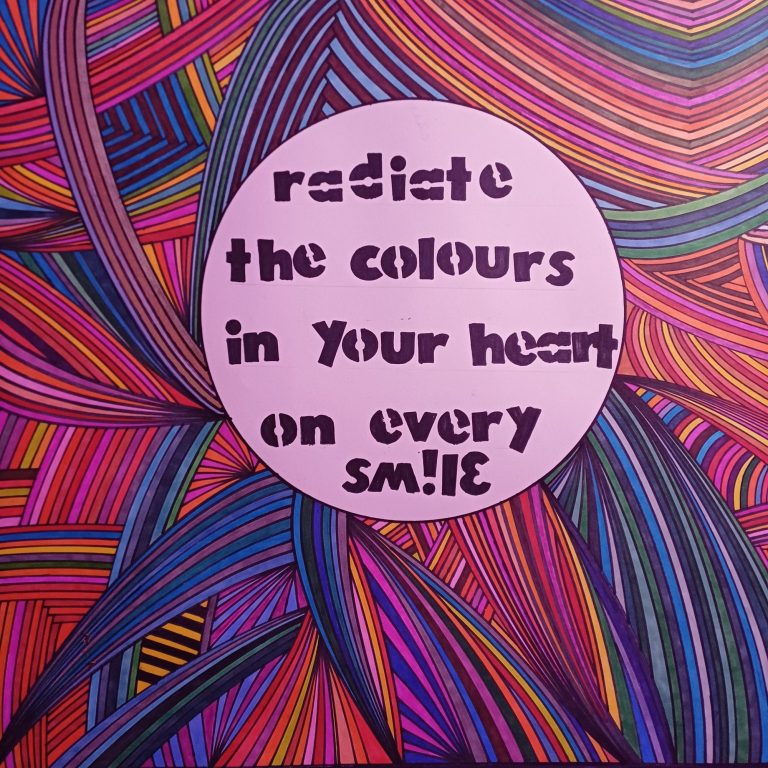 radiate
the colours
in your heart
on every
sm!lƐ